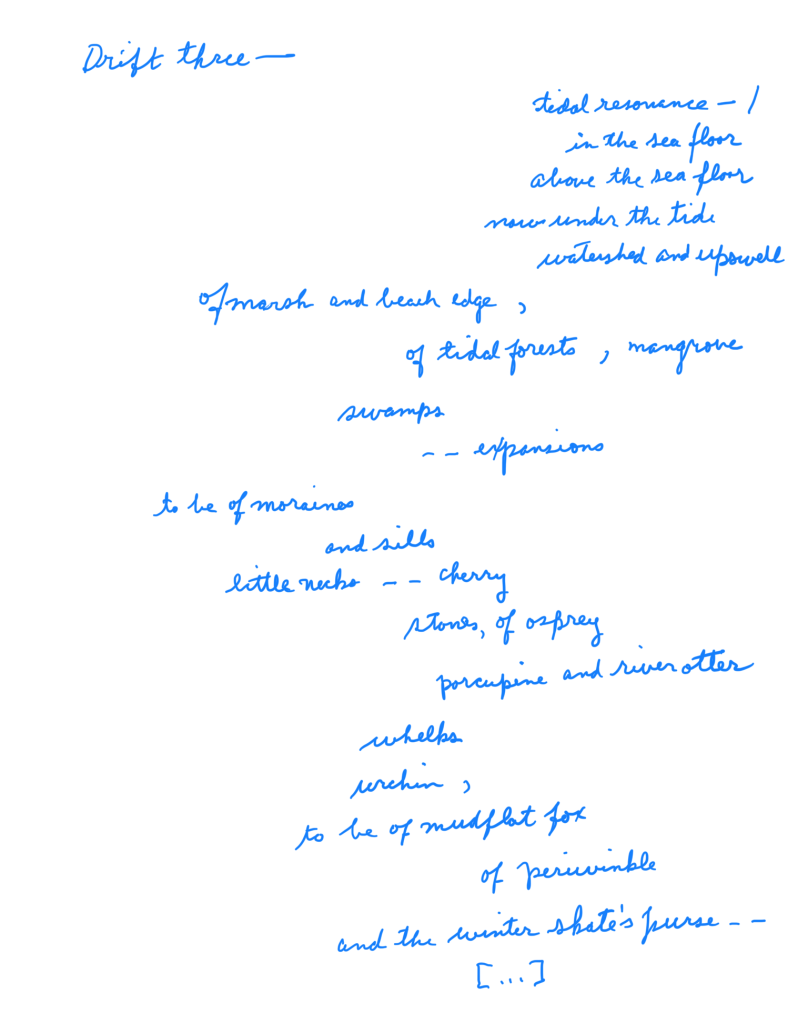 Drift three —
tidal resonance — /
in the sea floor
above the sea floor
now under the tide
watershed and upswell
of marsh and beach edge ,
of tidal forests , mangrove
swamps
-- expansions
to be of moraines
and sills
little necks -- cherry
stones, of osprey
porcupine and river otter
whelks
urchin ,
to be of mudflat fox
of periwinkle
and the winter skate's purse --
[...]